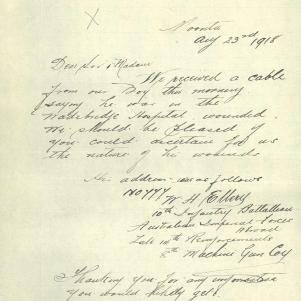 Moonta
Aug 23rd 1918
Dear Sir & Madam
We received a cable
from our Boy this morning
saying he was in the
Hospital wounded.
We should be pleased if
you could ascertain for us
the nature of his wounds
His address as follows
No 777
W H Ellery
10th Infantry Battallion
Australian Imperial Forces
Abroad
Late 10th Reinforcements
Machine Gun Coy
Thanking you for any information
you would kindly get.